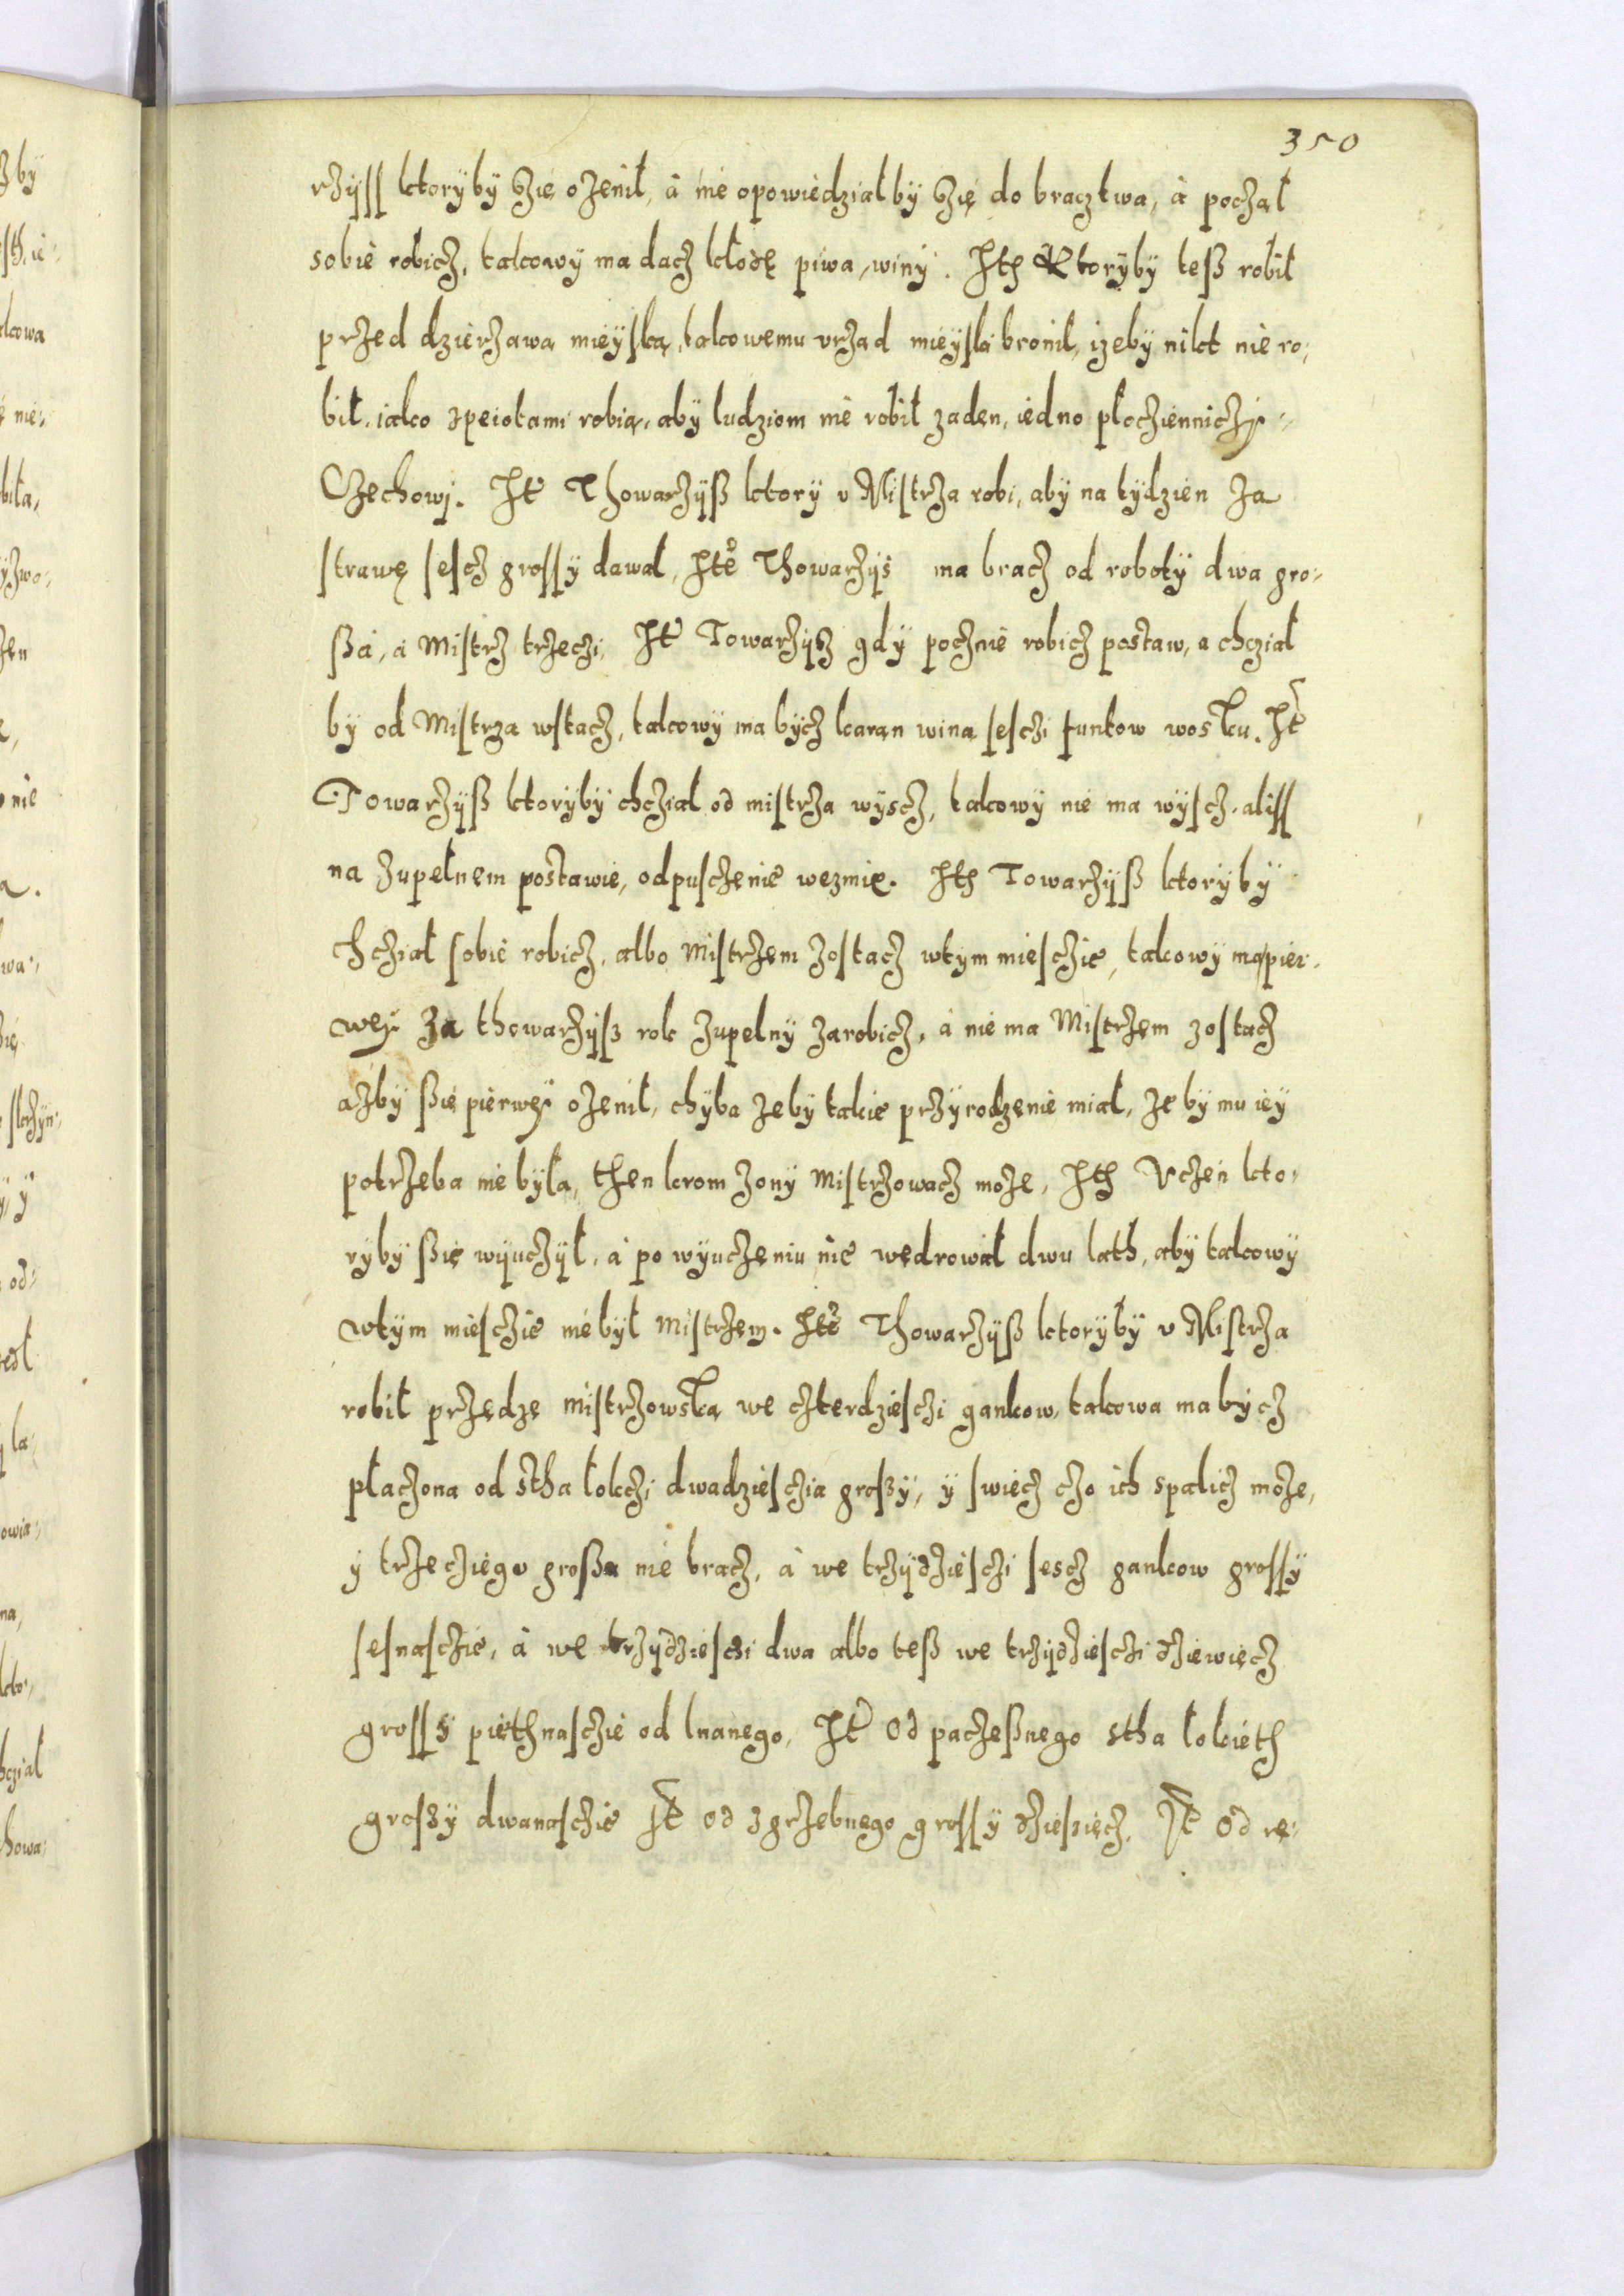 350
rzÿss ktorÿbÿ szie ozenił, á nie opowiedziałbÿ szię do braczkwa, á począł
sobie robicz, takowÿ ma dacz kłodę piwa winÿ. Ith Ktorÿbÿ teß robił
przed dzierzawa mieÿską, takowemu vrzad mieÿski bronił, izebÿ nikt nie ro:
bił, iako speiotami robią, abÿ ludziom nie robił zaden, iedno płoczienniczÿ
Czechowi. It Thowarzÿß ktorÿ v Mistrza robi, abÿ na tÿdzien za
strawę sescz grossÿ dawał, Ite Thowarzÿs ma bracz od robotÿ dwa gro:
ßá, á Mistrz trzeczi, It Towarzÿsz gdÿ pocznie robicz postaw, a chcział
bÿ od Mistrza wstacz, takowÿ ma bÿcz karan wina seschi funtow wosku. It
Towarzÿß ktorÿbÿ chczial od mistrza wÿscz, takowÿ nie ma wÿscz, aliss
na zupełnem postawie, odpusczenie wezmie. Ith Towarzÿß ktorÿbÿ
chcział sobie robicz, albo Mistrzem zostacz wtÿm miesczie, takowÿ ma pier:
weÿ za thowarzÿsz rok zupelnÿ zarobicz, á nie ma Mistrzem zostacz
ażbÿ ßie pierweÿ ozenił, chÿba zebÿ takie przÿrodzenie miał, ze bÿ mu ieÿ
potrzeba nie bÿła, then krom zonÿ Mistrzowacz może, Ith Vczen kto:
rÿbÿ ßię wÿuczÿł, á po wÿuczeniu nie wędrował dwu lath, abÿ takowÿ
wtÿm miesczie nie bÿł Mistrzem. Ite Thowarzÿß ktorÿbÿ v Mistrza
robił przędzę mistrzowską we czterdziesczi gankow, takowa ma bÿcz
płaczona od stha łokczi dwadziesczia groszÿ, ÿ swiecz czo ich spalicz może,
ÿ trzecziego großa nie bracz, á we trzÿdziesczi sescz gankow grossÿ
sesnasczie, á we trzÿdziesczi dwa albo teß we trzÿdziesczi dziewięcz
grossÿ piethnasczie od lnanego, It Od paczeßnego stha łokieth
groszÿ dwanasczie It od zgrzebnego grossÿ dziesięcz, It Od rę: